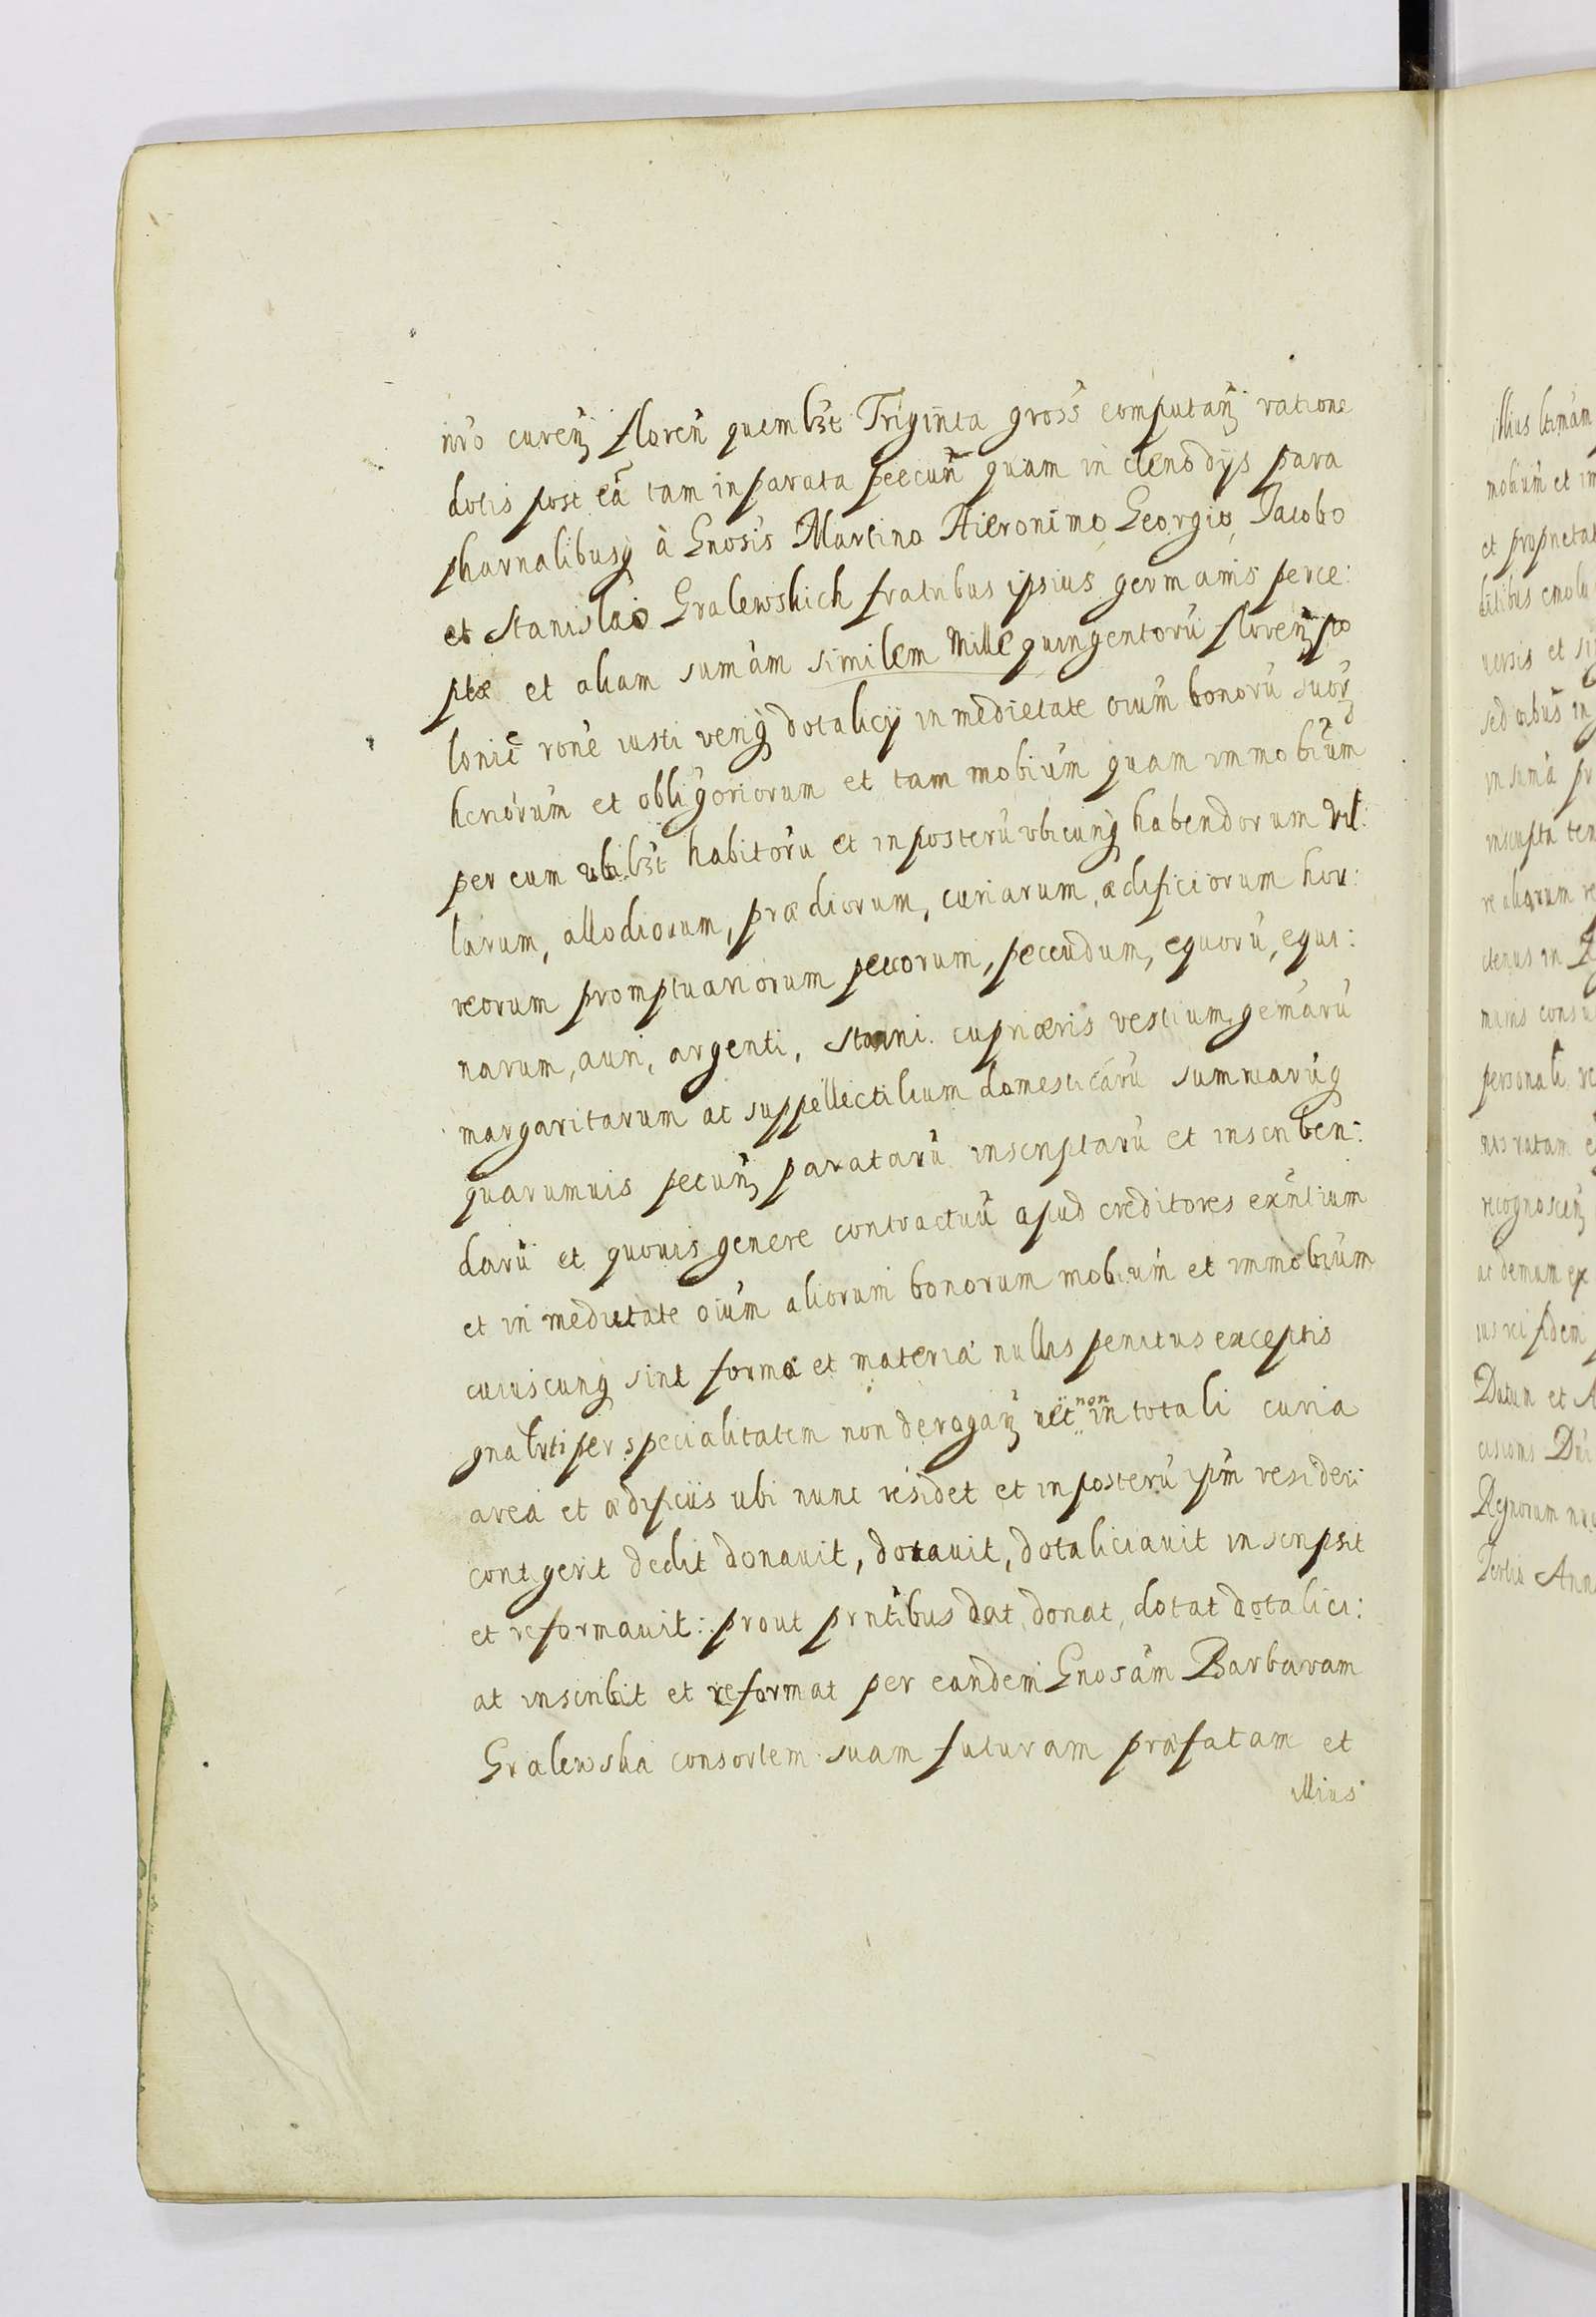 nr̃o curen̄ floren̄ quemlƷt Triginta gross̃ computan̄ ratione
dotis post eã tam in parata peecuñ quam in clenodÿs para
pharnalibusq̨ à Gnosis Martino Hieronimo, Georgio, Jacobo
et Stanislao Gralewskich fratribus ipsius germanis perce:
ptæ et aliam sum̃am similem Mille quingentorũ floren̄ po
lonic̃ rone̾ iusti veriq̨ dotalicÿ in medietate oium̃ bonorũ suor̃
hæriorum̃ et oblig̃oriorum et tam mobium̃ quam immobium̃
per eum ubilƷt habitorũ et in posterũ vbicunq̨ habendorum vil:
larum, allodiorum, prædiorum, curiarum, ædificiorum hor:
reorum promptuariorum peccorum, peccudum, equorũ, equi:
narum, auri, argenti, stanni. cupriæris vestium, gem̃arũ
margaritarum ac suppellectilium domesticarũ summarũq̨
quarumuis pecun̄ paratarũ inscriptarũ et inscriben:
darũ et quouis genere contractuũ apud creditores exñtium
et in medietate oium̃ aliorum bonorum mobium̃ et immobium̃
cuiuscunq̨ sint forma et materia nullis penitus exceptis
gnaliti per specialitatem non derogan̄ nec non in totali curia
area et ædificiis ubi nunc residet et in posterũ ip̃m resideri
contigerit dedit donauit, dotauit, dotaliciauit inscripsit
et reformauit: prout pr̃ntibus dat, donat, dotat dotalici:
at inscribit et reformat per eandem Gnosam̃ Barbaram
Gralewska consortem suam futuram præfatam et
illius
illius
mobium̃ et im
et propnetat
emolu
uersis et si
sed
in sum̃a pr
inscripta ten
re aliarum re
ctenus in
personali re
ratam e
recognoscen̄
ac demum ex
ius rei fidem
Datum et A
Regnorum nr
Tertio Ann